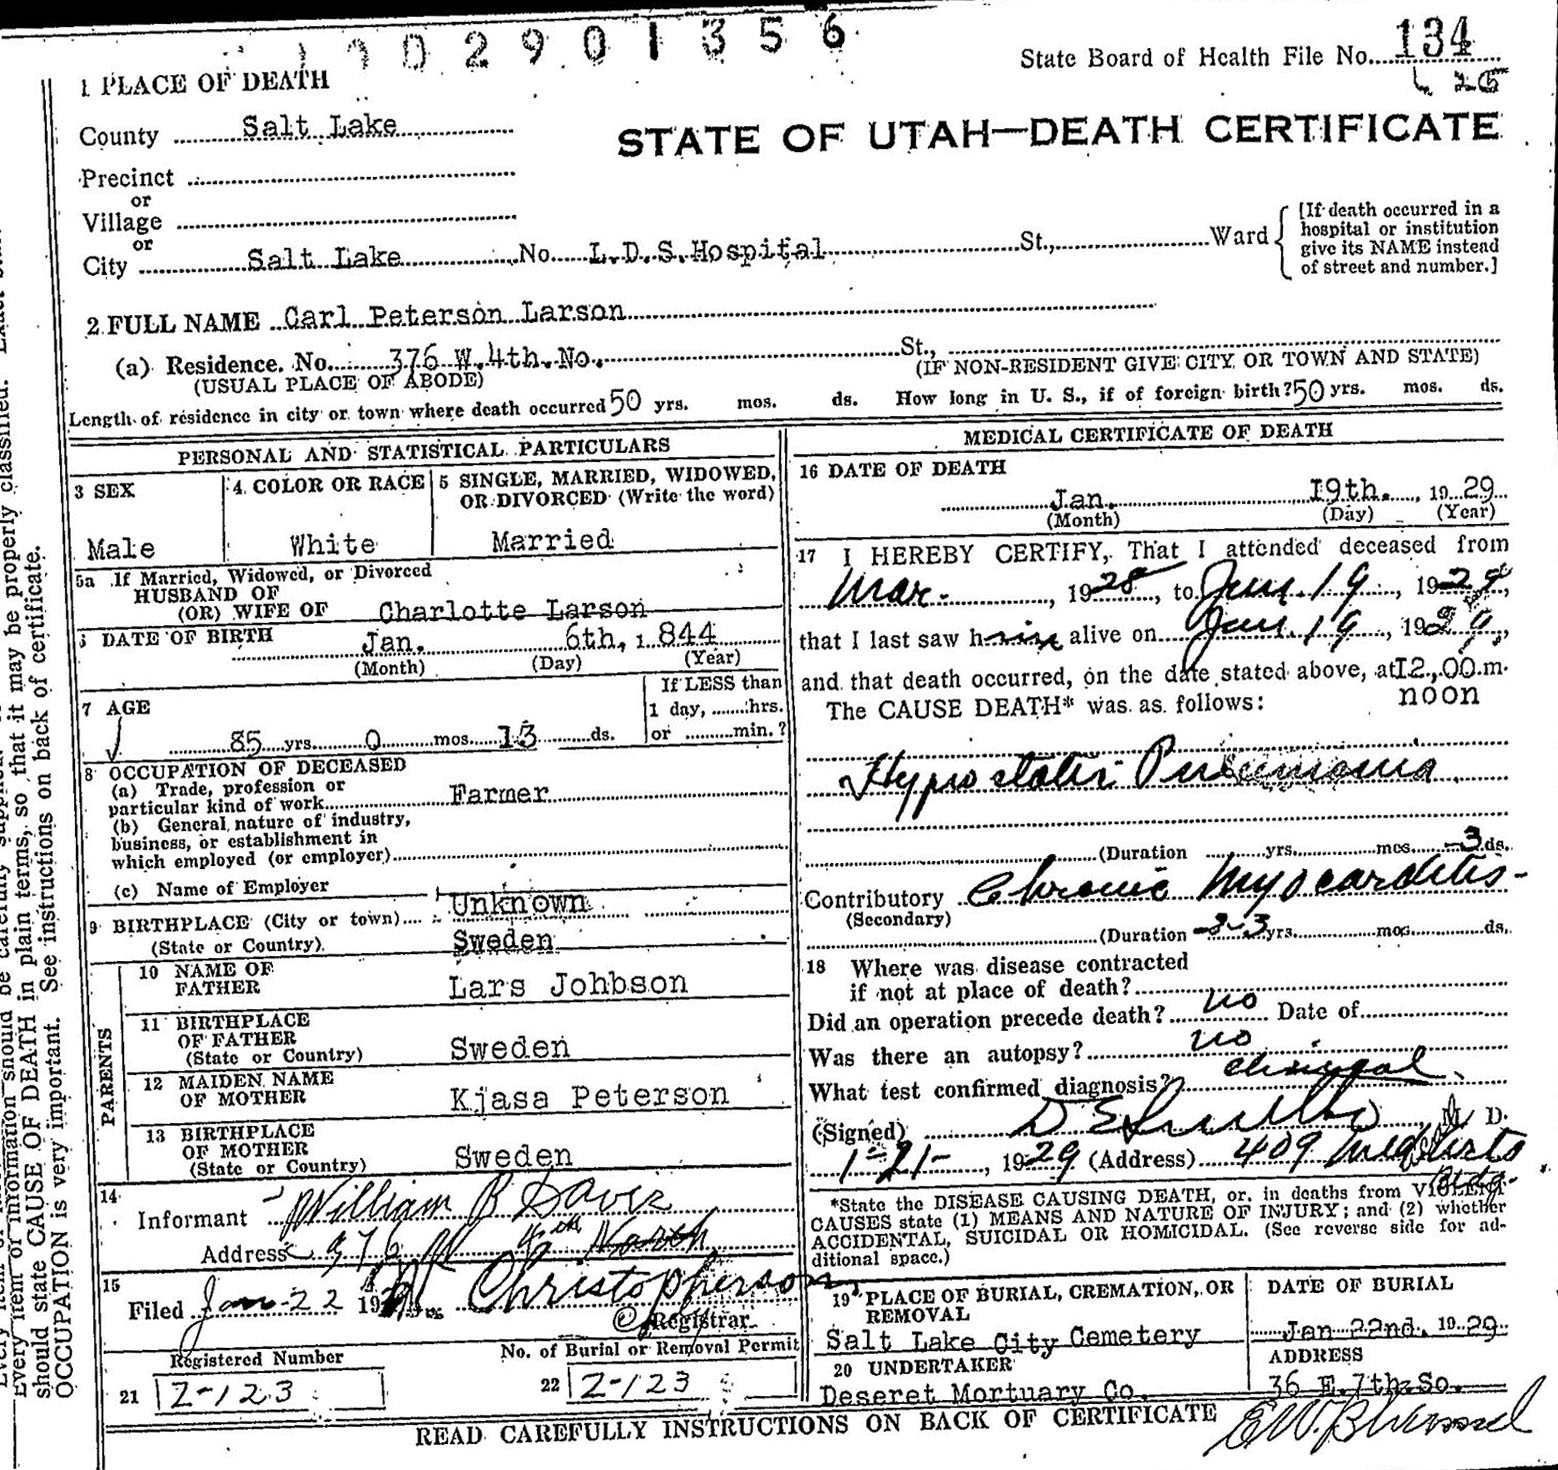 1002901356
State Board of Health File No. 134
1 PLACE OF DEATH
County Salt Lake
STATE OF UTAH—DEATH CERTIFICATE
Precinct
or
Village
or
City Salt Lake No. L.D.S.Hospital St., Ward
[If death occurred in a
hospital or institution
give its NAME instead
of street and number.]
2 FULL NAME Carl Peterson Larson
(a) Residence. No. 376 W. 4th. No. St.,
(USUAL PLACE OF ABODE) (IF NON-RESIDENT GIVE CITY OR TOWN AND STATE)
Length of residence in city or town where death occurred 50 yrs. mos. ds. How long in U. S., if of foreign birth? 50 yrs. mos. ds.
PERSONAL AND STATISTICAL PARTICULARS
3 SEX
Male
4 COLOR OR RACE
White
5 SINGLE, MARRIED, WIDOWED,
OR DIVORCED (Write the word)
Married
5a If Married, Widowed, or Divorced
HUSBAND OF
(OR) WIFE OF Charlotte Larson
6 DATE OF BIRTH Jan. 6th, 1844
(Month) (Day) (Year)
7 AGE
85 yrs. 0 mos. 13 ds.
If LESS than
1 day, hrs.
or min.?
8 OCCUPATION OF DECEASED
(a) Trade, profession or
particular kind of work Farmer
(b) General nature of industry,
business, or establishment in
which employed (or employer)
(c) Name of Employer
9 BIRTHPLACE (City or town) Unknown
(State or Country) Sweden
PARENTS
10 NAME OF
FATHER Lars Johbson
11 BIRTHPLACE
OF FATHER
(State or Country) Sweden
12 MAIDEN NAME
OF MOTHER Kjasa Peterson
13 BIRTHPLACE
OF MOTHER
(State or Country) Sweden
14
Informant William B Davis
Address 376 W 4th North
15
Filed Jan 22 19 Christopherson
Registrar
Registered Number
21 Z-123
No. of Burial or Removal Permit
22 Z-123
MEDICAL CERTIFICATE OF DEATH
16 DATE OF DEATH
Jan. 19th. , 19 29
(Month) (Day) (Year)
17 I HEREBY CERTIFY, That I attended deceased from
Mar. , 1928, to Jan. 19 , 1929,
that I last saw him alive on Jan 19 , 1929,
and that death occurred, on the date stated above, at 12.,00.m.
noon
The CAUSE DEATH* was as follows:
Hypostatic Pneumonia
(Duration yrs. mos. 3 ds.
Contributory Chronic Myocarditis-
(Secondary)
(Duration 2-3 yrs. mos. ds.
18 Where was disease contracted
if not at place of death?
Did an operation precede death? no Date of
Was there an autopsy? no
What test confirmed diagnosis? Clinical
(Signed) D E Smith M. D.
1-21- , 1929 (Address) 409 Med Arts
Bldg.
*State the DISEASE CAUSING DEATH, or, in deaths from VIOLENT
CAUSES state (1) MEANS AND NATURE OF INJURY; and (2) whether
ACCIDENTAL, SUICIDAL OR HOMICIDAL. (See reverse side for ad-
ditional space.)
19 PLACE OF BURIAL, CREMATION, OR
REMOVAL
Salt Lake City Cemetery
DATE OF BURIAL
Jan 22nd, 19 29
20 UNDERTAKER
Deseret Mortuary Co.
ADDRESS
36 E. 7th. So.
READ CAREFULLY INSTRUCTIONS ON BACK OF CERTIFICATE
Every item of information should be carefully supplied.
should state CAUSE OF DEATH in plain terms, so that it may be properly classified. Exact
OCCUPATION is very important. See instructions on back of certificate.